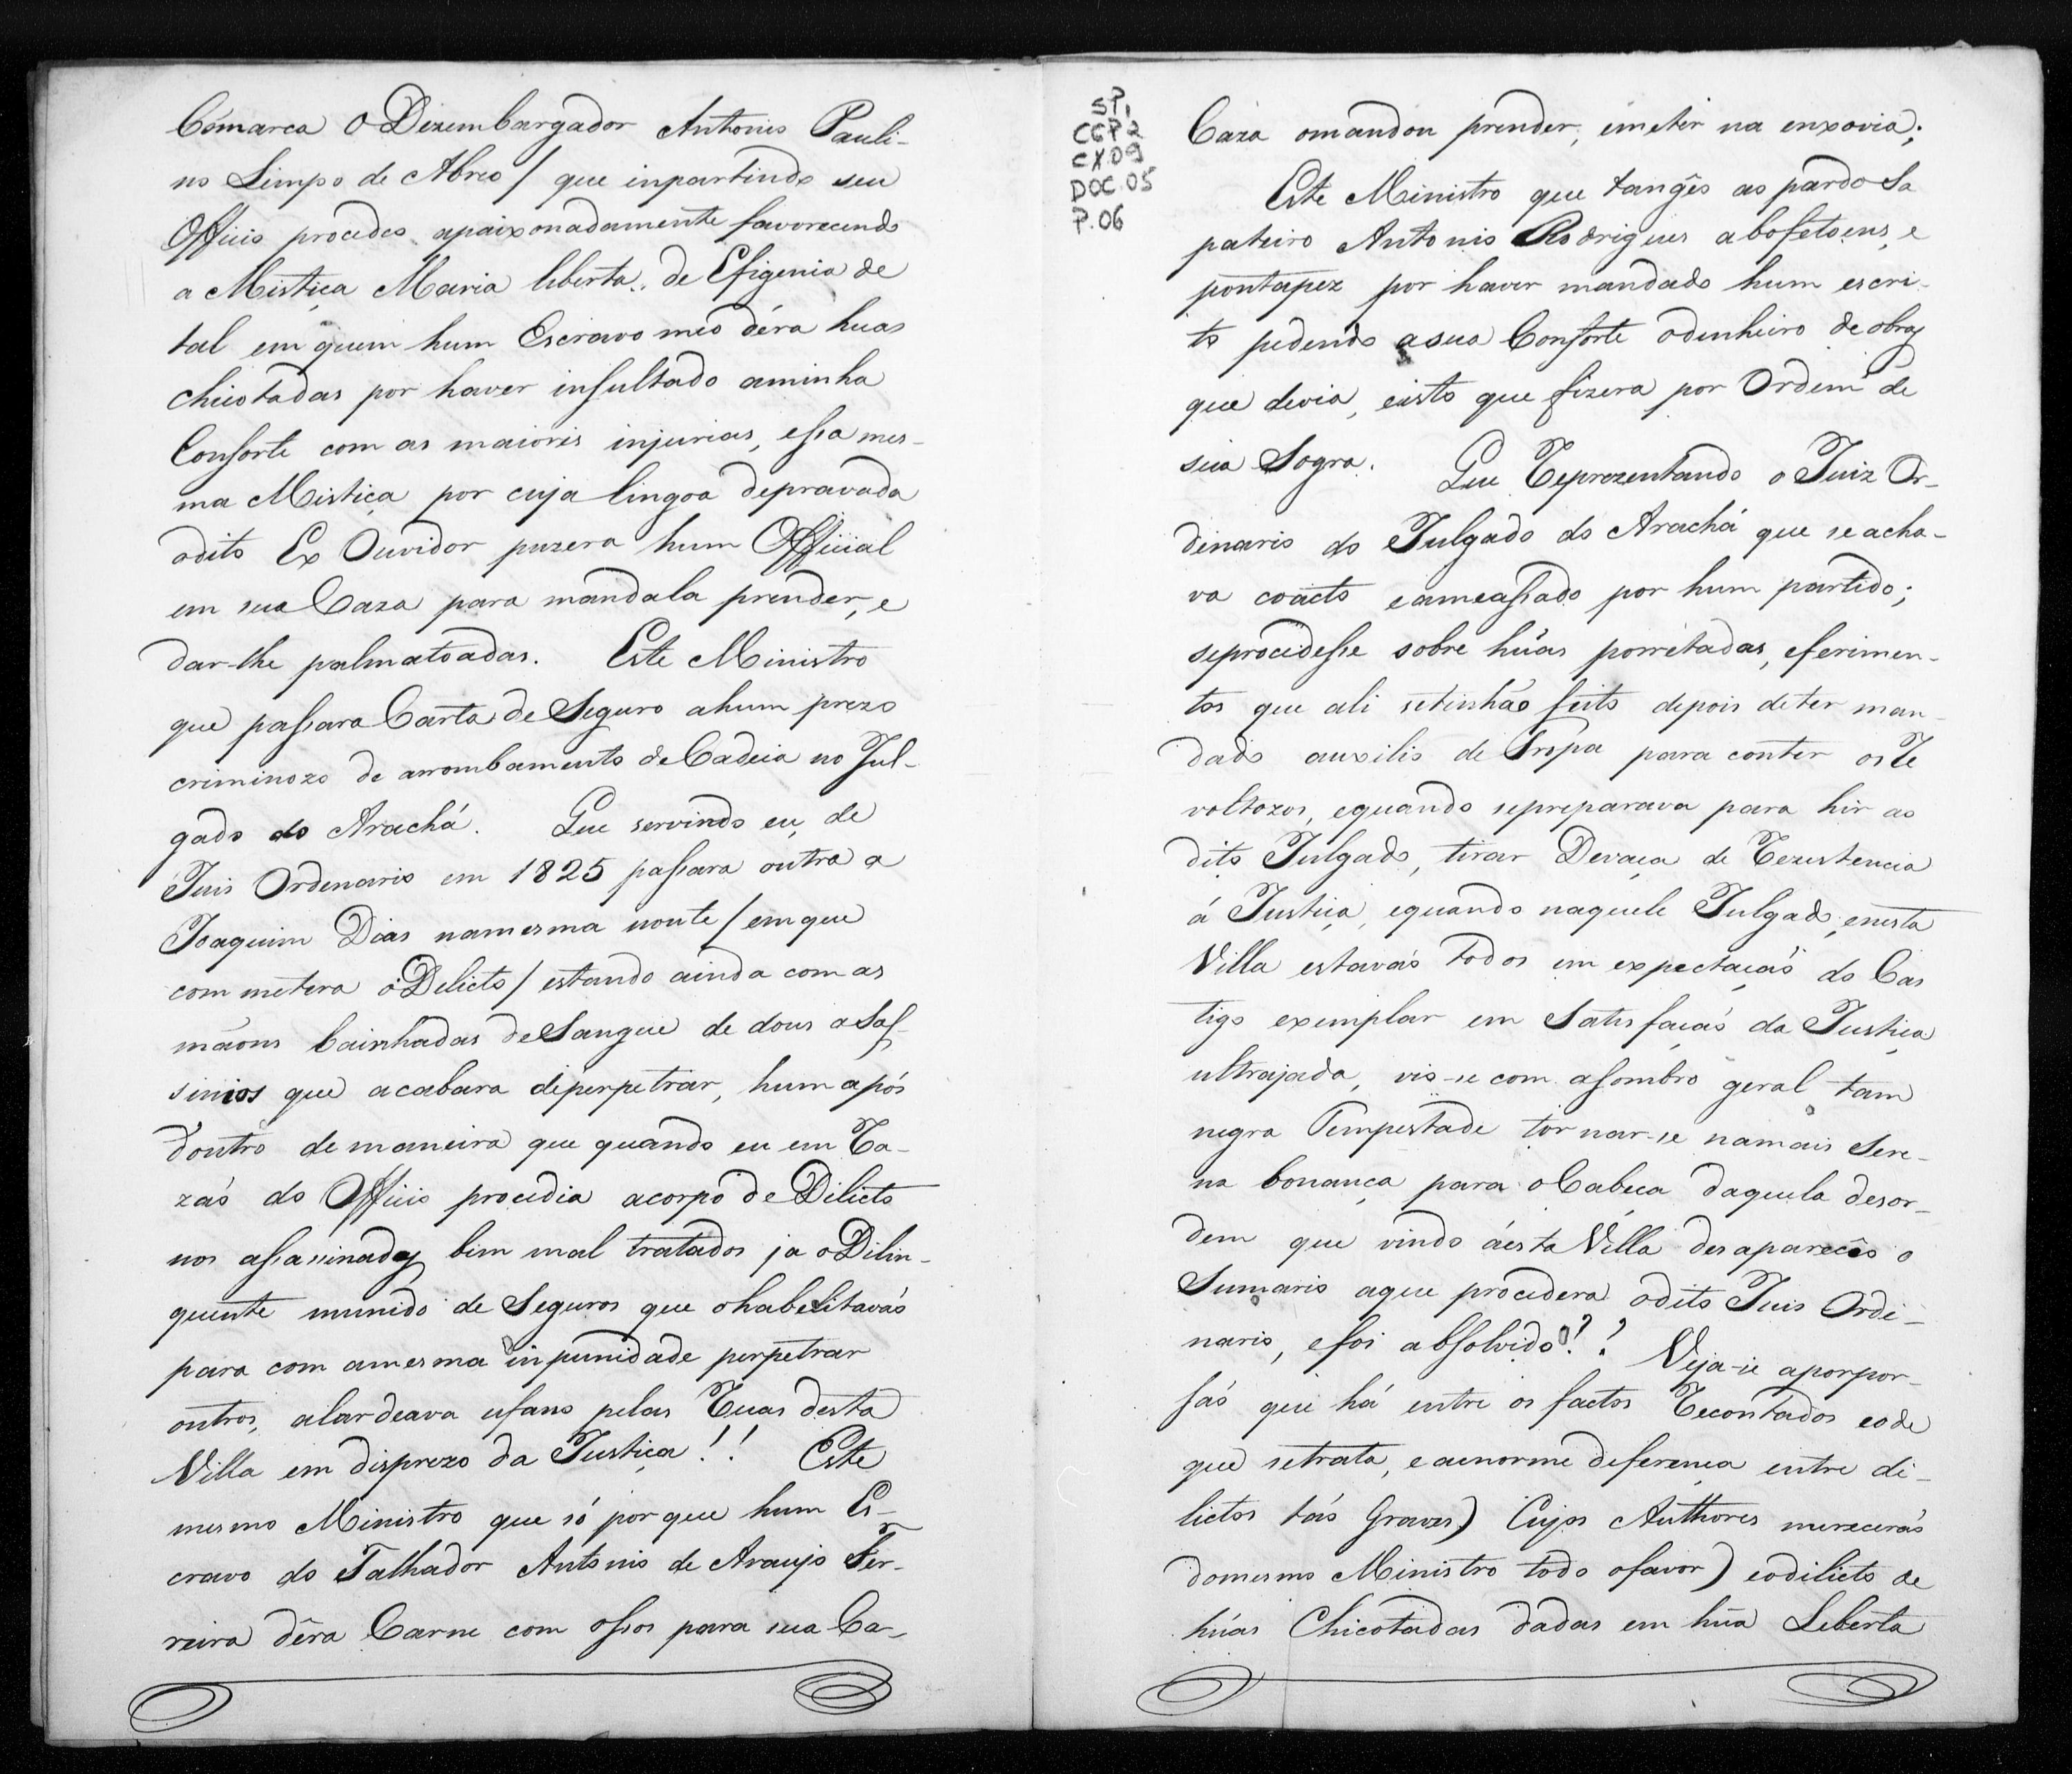 Cómarca O Dizembargador Antonio Pauli-
no Limpo de Abreo / que inpartindo seu
Officio procedeo apaixonadamente favorecendo
a Mistiça Maria liberta.. de Efigenia de
tal em quem hum Escravo meo déra huas
chicotadas por haver insultado aminha
Consorte com as maioris injurias, essa mes-
ma Mistiça por cuja lingoa depravada
odito Ex Ouvidor puzera hum Official
em sua Caza para mandala prender, e
dar-lhe palmatoadas. Este Ministro
que passara Carta de Seguro ahum prezo
criminozo de arrombamento de Cadeia no Jul-
gado do Arachá. Que servindo eu, de
Juis Ordenario em 1825 passara outra a
Joaquim Dias namesma noute / emque
com metera o Delicto / estando ainda com as
maons bainhadas de Sangue de dous asas-
sinios que acabara deperpetrar, hum após
doutro de maneira que quando eu em Ra-
zaó do Officio procedia acorpo de Dilicto
nos assassinados bim mal tratados ja o Dilin-
quente munido de Seguros que ohabelitavaó
para com amesma inpunidade perpetrar
outros, alardeava ufano pelas Ruas desta
Villa em disprezo da Justiça!! Este
mesmo Ministro que só porque hum Es-
cravo do Talhador Antonio de Araujo Fer-
reira dêra Carne com ossos para sua Ca-
SP,
CGP2
CX.09
DOC.05
P.06
Caza omandou prender, emetir na enxovia;
Este Ministro que tangêo ao pardo Sa
pateiro Antonio Rodrigues abofetoens, e
pontapez por haver mandado hum escri-
to pedendo asua Consorte odinheiro de obras
que devia, eisto que fizera por Ordem de
sua Sogra. Que Reprezentando o Juiz Or-
dinario do Julgado do Arachá que se acha-
va coacto eameassado por hum partido;
seprocedesse sobre húas porretadas, eferimen-
tos que ali setinhaõ feito depois deter man-
dado auxilio de Tropa para conter os Re
voltozos, equando sepreparava para hir ao
dito Julgado, tirar Devaça de Rezistencia
á Justiça, equando naquele Julgado, enesta
Villa estavaó todos em expectaçaó do Cas
tigo exemplar em Satisfaçaó da Justiça
ultrajada, vio-se com asombro geral tam
negra Tempestade tornar-se namais Sere-
na bonança para o Cabeca daquela desor-
dem que vindo áesta Villa desaparecêo o
Sumario aque procedera odito Juis Ordi-
nario, efoi absolvido!? Veja-se aporpor-
saó que há entre os factos Recontados eode
que setrata, eaenorme deferença entre di-
lictos taó Graves) Cujos Authores merceraó
domesmo Ministro todo ofavor) eodilicto de
húas Chicotadas dadas em hũa Leberta